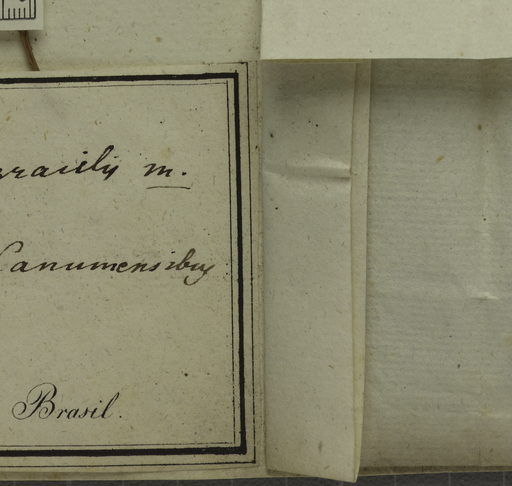 gracilis m.
Canumensibus
Brasil.